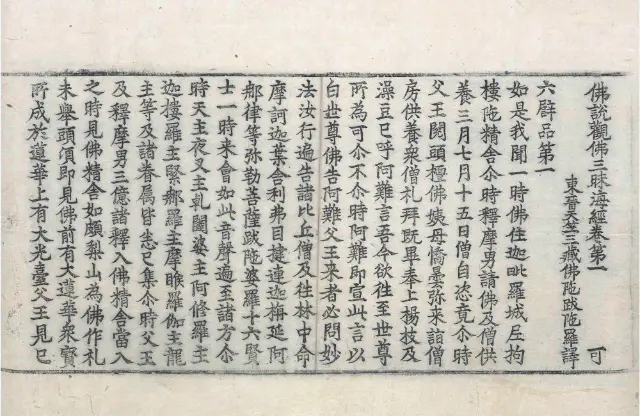 佛說觀佛三昧海經卷第一 可
東晉天竺三藏佛陁跋陁羅譯
六譬品第一
如是我聞一時佛住迦毗羅城尼拘
樓陁精舍尒時釋摩男請佛及僧供
養三月七月十五日僧自恣竟尒時
父王閱頭檀佛姨母憍曇弥來詣僧
房供養衆僧礼拜旣畢奉上楊枝及
澡豆已呼阿難言吾今欲往至世尊
所為可尒不尒時阿難即宣此言以
白世尊佛告阿難父王來者必問妙
法汝行遍告諸比丘僧及往林中命
摩訶迦葉舍利弗目揵連迦栴延阿
那律等弥勒菩薩跋陁婆羅十六賢
士一時来會如此音聲遍至諸方尒
時天主夜叉主乹闥婆主阿修羅主
迦樓羅主緊那羅主摩睺羅伽主龍
主等及諸眷屬皆悉已集尒時父王
及釋摩男三億諸釋入佛精舍當入
之時見佛精舍如頗梨山為佛作礼
未舉頭頃即見佛前有大蓮華衆寶
所成於蓮華上有大光臺父王見已